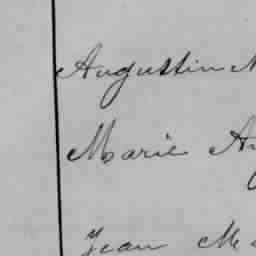 Augustin
Marie
Jean